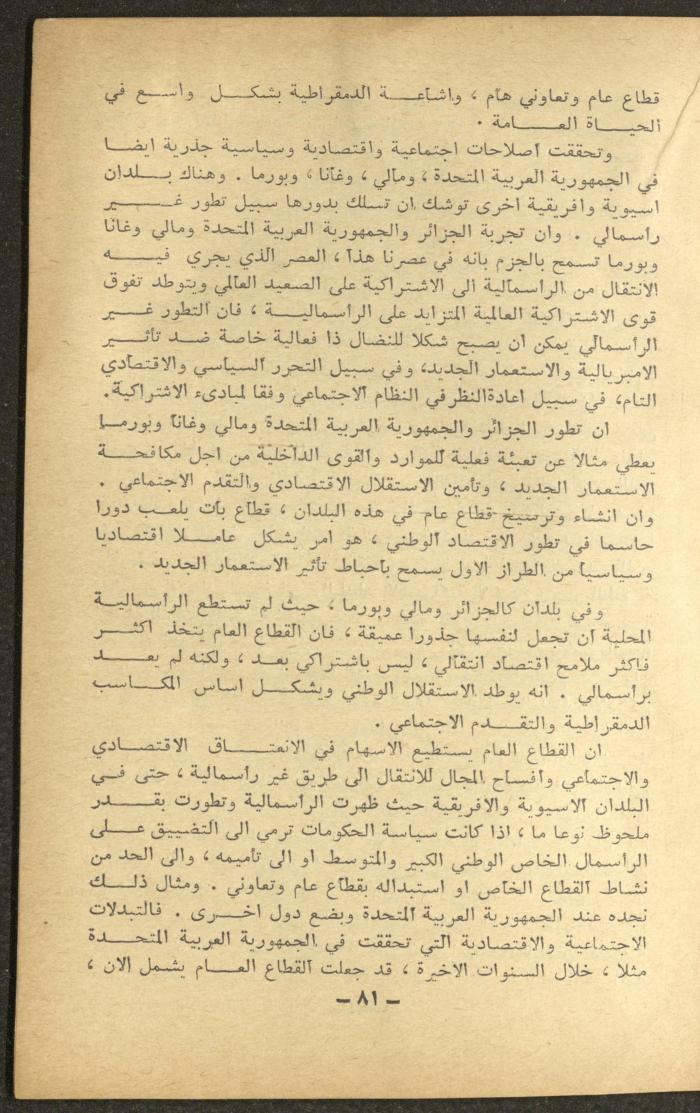 قطاع عام وتعاوني هام ، واشاعـــة الدمقراطية بشكــل واســع في
الحيــاة العــامة .
وتحققت اصلاحات اجتماعية واقتصادية وسياسية جذرية ايضــا
في الجمهورية العربية المتحدة ، ومالي ، وغانا ، وبورما . وهناك بــلدان
اسيوية وافريقية اخرى توشك ان تسلك بدورها سبيل تطور غــير
راسمالي . وان تجربة الجزائر والجمهورية العربية المتحدة ومالي وغانا
وبورما تسمح بالجزم بانه في عصرنا هذا ، العصر الذي يجري فيــه
الانتقال من الراسمالية الى الاشتراكية على الصعيد العالمي ويتوطد تفوق
قوى الاشتراكية العالمية المتزايد على الراسماليــة ، فان التطور غــير
الراسمالي يمكن ان يصبح شكلا للنضال ذا فعالية خاصة ضــد تأثــير
الامبريالية والاستعمار الجديد، وفي سبيل التحرر السياسي والاقتصادي
التام، في سبيل اعادةالنظرفي النظام الاجتماعي وفقا لمبادىء الاشتراكية.
ان تطور الجزائر والجمهورية العربية المتحدة ومالي وغانا وبورمــا
يعطي مثالا عن تعبئة فعلية للموارد والقوى الداخلية من اجل مكافحــة
الاستعمار الجديد ، وتأمين الاستقلال الاقتصادي والتقدم الاجتماعي .
وان انشاء وترسيخ قطاع عام في هذه البلدان ، قطاع بات يلعــب دورا
حاسما في تطور الاقتصاد الوطني ، هو امر يشكل عامــلا اقتصاديا
وسياسيا من الطراز الاول يسمح باحباط تأثير الاستعمار الجديد .
وفي بلدان كالجزائر ومالي وبورما ، حيث لم تستطع الراسماليــة
المحلية ان تجعل لنفسها جذورا عميقة ، فان القطاع العام يتخذ اكثــر
فاكثر ملامح اقتصاد انتقالي ، ليس باشتراكي بعد ، ولكنه لم يعــد
براسمالي . انه يوطد الاستقلال الوطني ويشكــل اساس المكــاسب
الدمقراطية والتقــدم الاجتماعي .
ان القطاع العام يستطيع الاسهام في الانعتــاق الاقتصــادي
والاجتماعي وافساح المجال للانتقال الى طريق غير راسمالية ، حتى فــي
البلدان الاسيوية والافريقية حيث ظهرت الراسمالية وتطورت بقــدر
ملحوظ نوعا ما ، اذا كانت سياسة الحكومات ترمي الى التضييق عــلى
الراسمال الخاص الوطني الكبير والمتوسط او الى تأميمه ، والى الحد من
نشاط القطاع الخاص او استبداله بقطاع عام وتعاوني . ومثال ذلــك
نجده عند الجمهورية العربية المتحدة وبضع دول اخــرى . فالتبدلات
الاجتماعية والاقتصادية التي تحققت في الجمهورية العربية المتحــدة
مثلا ، خلال السنوات الاخيرة ، قد جعلت القطاع العــام يشمل الان ،
– ٨١ –